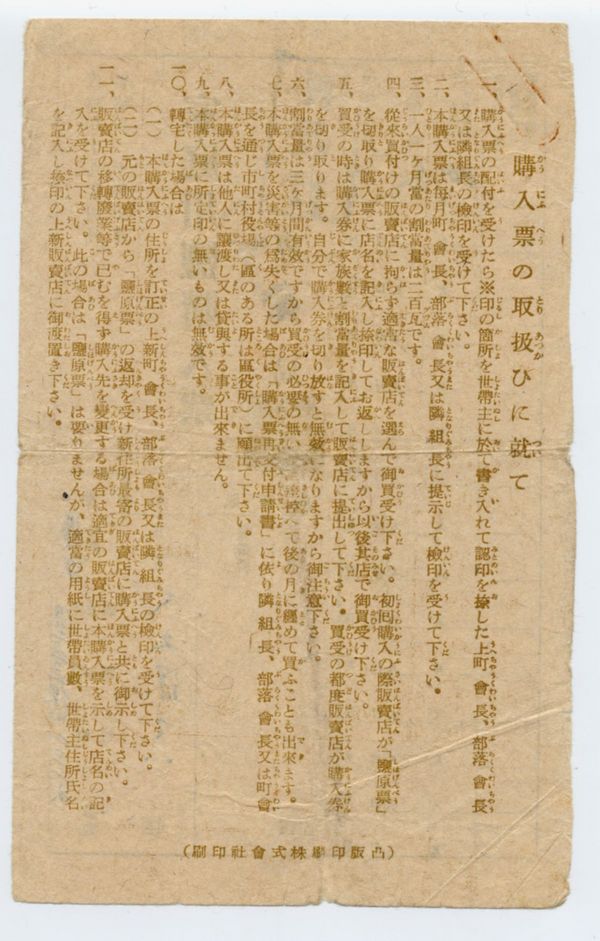 購入票の取扱ひに就て
一、購入票の配付を受けたら※印の箇所を世帶主に於て書き入れて認印を捺した上町會長、部落會長
又は隣組長の檢印を受けて下さい。
二、本購入票は毎月町會長、部落會長又は隣組長に提示して檢印を受けて下さい。
三、一人一ヶ月當の割當量は二百瓦です。
四、從來買付けの販賣店に拘らず適當な販賣店を選んで御買受け下さい。初回購入の際販賣店が「鹽原票」
を切取り購入票に店名を記入し捺印してお返しますから以後其店で御買受け下さい。
五、買受の時は購入券に家族數と割當量を記入して販賣店に提出して下さい。買受の都度販賣店が購入券
を切り取ります。自分で購入券を切り放すと無效になりますから御注意下さい。
六、割當量は三ヶ月間有效ですから買受の必要の無い 控へて後の月に纏めて買ふことも出來ます。
七、本購入票を災害等の爲失くした場合は「購入票再交付申請書」に依り隣組長、部落會長又は町會
長を通じ市町村役場（區のある所は區役所）に願出て下さい。
八、本購入票は他人に讓渡し又は貸與する事が出來ません。
九、本購入票に所定印の無いものは無效です。
一〇、轉宅した場合は
（一）本購入票の住所を訂正の上新町會長、部落會長又は隣組長の檢印を受けて下さい。
（二）元の販賣店から「鹽原票」の返却を受け新住所最寄の販賣店に購入票と共に御示し下さい。
一一、販賣店の移轉廢業等で已むを得ず購入先を變更する場合は適宜の販賣店に本購入票を示して店名の記
入を受けて下さい。此の場合は「鹽原票」は要りませんが、適當の用紙に世帶員數、世帶主住所氏名
を記入し捺印の上新販賣店に御渡置き下さい。
（凸版印刷株式會社印刷）